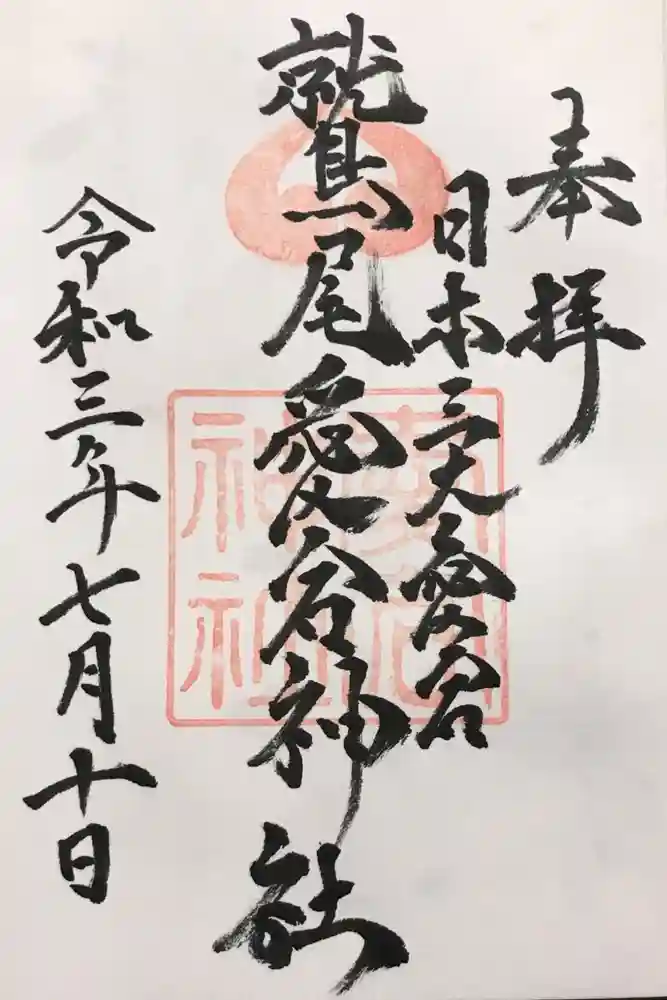 奉拝
日本三大愛宕
鷲尾愛宕神社
愛宕神社
令和三年七月十日